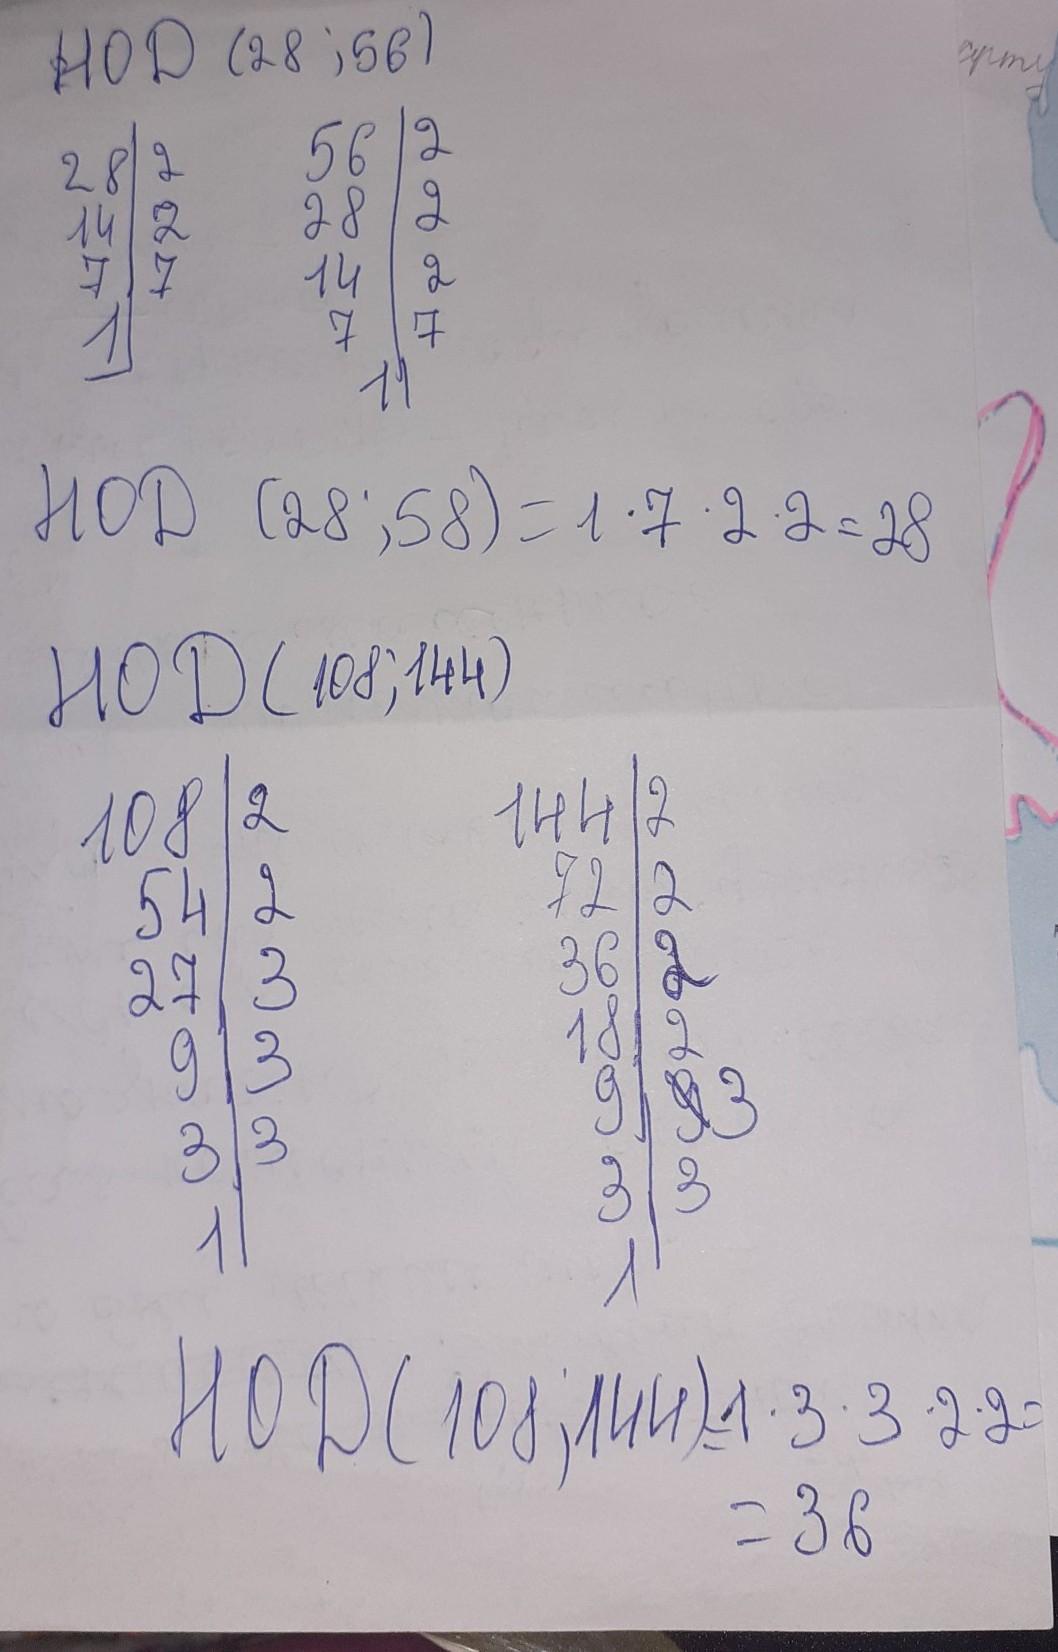 НОД (28;56)
28|2 56|2
14|2 28|2
7|7 14|2
1| 7|7
1|
НОД (28;58)=1·7·2·2=28
НОД(108;144)
108|2 144|2
54|2 72|2
27|3 36|2
9|3 18|2
3|3 9|3
1| 3|3
1|
НОД(108;144)=1·3·3·2·2=
=36